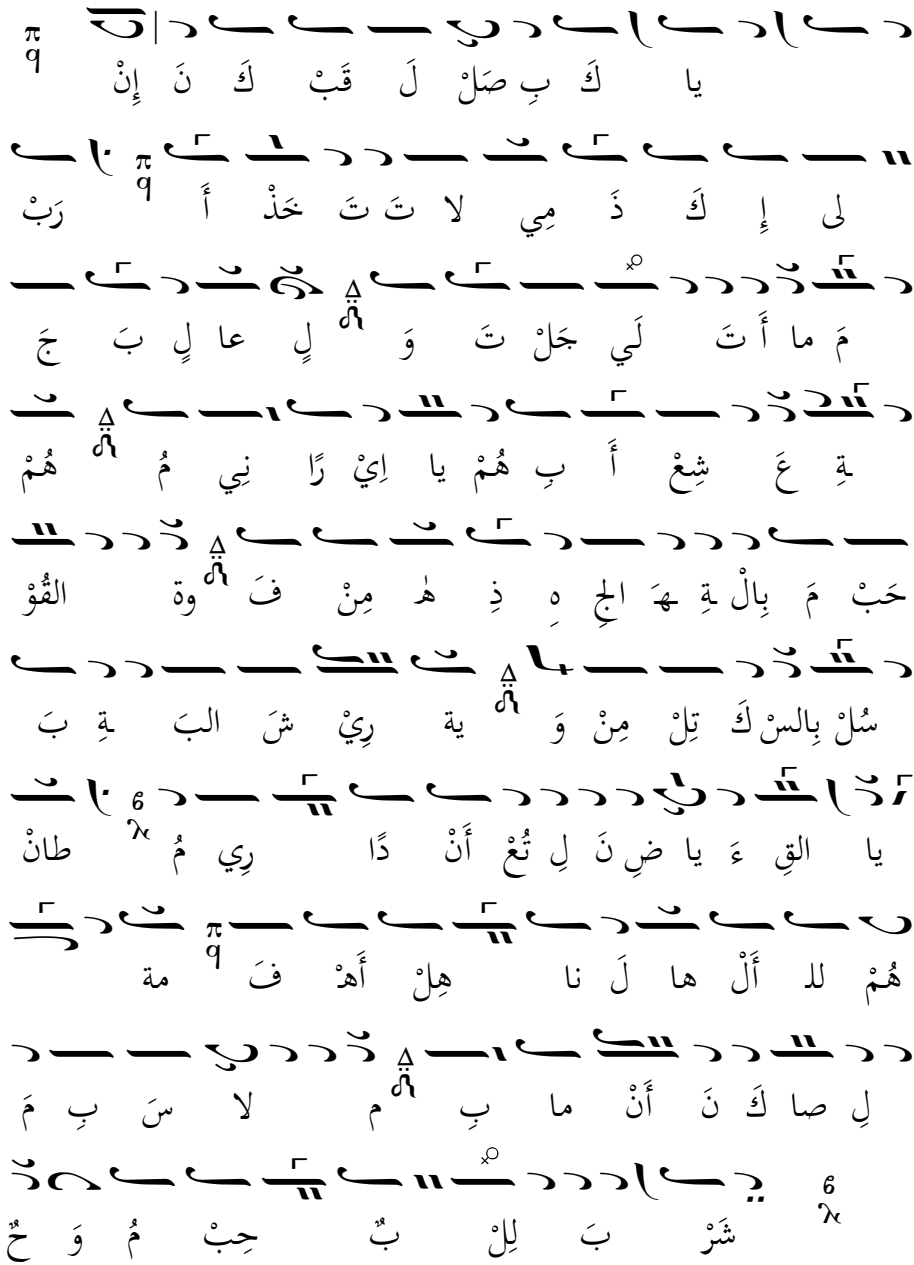 يا كَ بِ صَلْ لَ قَبْ كَ نَ إِنْ
لى إِ كَ ذَ مِي لا تَ تَ خَذْ أَ رَبْ
مَ ما أَ تَ لَي جَلْ تَ وَ لٍ عا لٍ بَ جَ
ـةِ عَ شِعْ أَ بِ هُمْ يا اِيْ رًا نِي مُ هُمْ
حَبْ مَ بِالْ ـةِ ـهَـ الجِ هِ ذِ هٰـ مِنْ فَ وة القُوْ
سُلْ بِالسْ كَ تِلْ مِنْ وَ ية رِيْ شَ البَ ـةِ بَ
يا القِ ءَ يا ضِ نَ لِ تُعْ أَنْ دًا رِي مُ طانْ
هُمْ للـ أَلْ ها لَ نا هِلْ أَهْـ فَ مة
لِ صا كَ نَ أَنْ ما بِ م لا سَ بِ مَ
شَرْ بَ لِلْ بٌ حِبْ مُ وَ حٌ